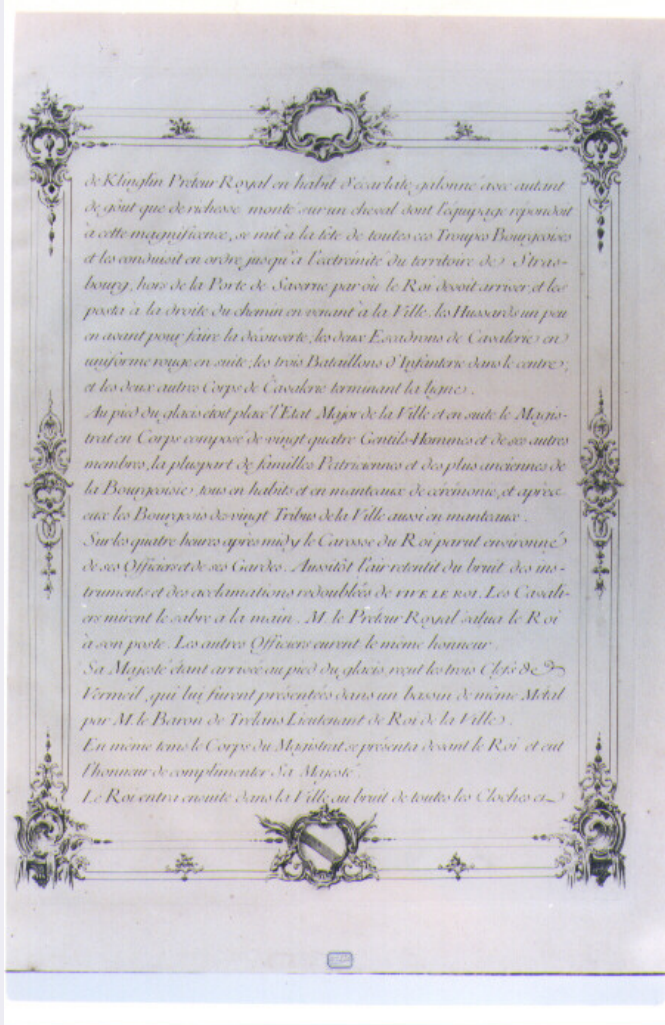 de Klinglin Préteur Royal en habit d'écarlate, galonné avec autant
de goût que de richesse monté sur un cheval dont l'équipage répondoit
à cette magnificence, se mit à la tête de toutes ces Troupes Bourgeoises
et les conduisit en ordre jusqu'à l'extrémité du territoire de Stras-
bourg, hors de la Porte de Saverne par où le Roi devoit arriver, et les
posta à la droite du chemin en venant à la Ville, les Hussards un peu
en avant pour faire la découverte; les deux Escadrons de Cavalerie en
uniforme rouge en suite; les trois Bataillons d'Infanterie dans le centre;
et les deux autres Corps de Cavalerie terminant la ligne.
Au pied du glacis étoit placé l'Etat Major de la Ville et en suite le Magis-
trat en Corps composé de vingt quatre Gentils-Hommes et de ses autres
membres, la pluspart de familles Patriciennes et des plus anciennes de
la Bourgeoisie, tous en habits et en manteaux de cérémonie, et après
eux les Bourgeois de vingt Tribus de la Ville aussi en manteaux.
Sur les quatre heures après midy le Carosse du Roi parut environné
de ses Officiers et de ses Gardes. Aussitôt l'air retentit du bruit des ins-
truments et des acclamations redoublées de VIVE LE ROI. Les Cavali-
ers mirent le sabre à la main. M. le Préteur Royal salua le Roi
à son poste. Les autres Officiers eurent le même honneur.
Sa Majesté étant arrivée au pied du glacis, reçut les trois Clefs de
Vermeil, qui lui furent présentées dans un bassin de même Métal
par M. le Baron de Trelans Lieutenant de Roi de la Ville.
En même tems le Corps du Magistrat se présenta devant le Roi et eut
l'honneur de complimenter Sa Majesté.
Le Roi entra ensuite dans la Ville au bruit de toutes les Cloches et